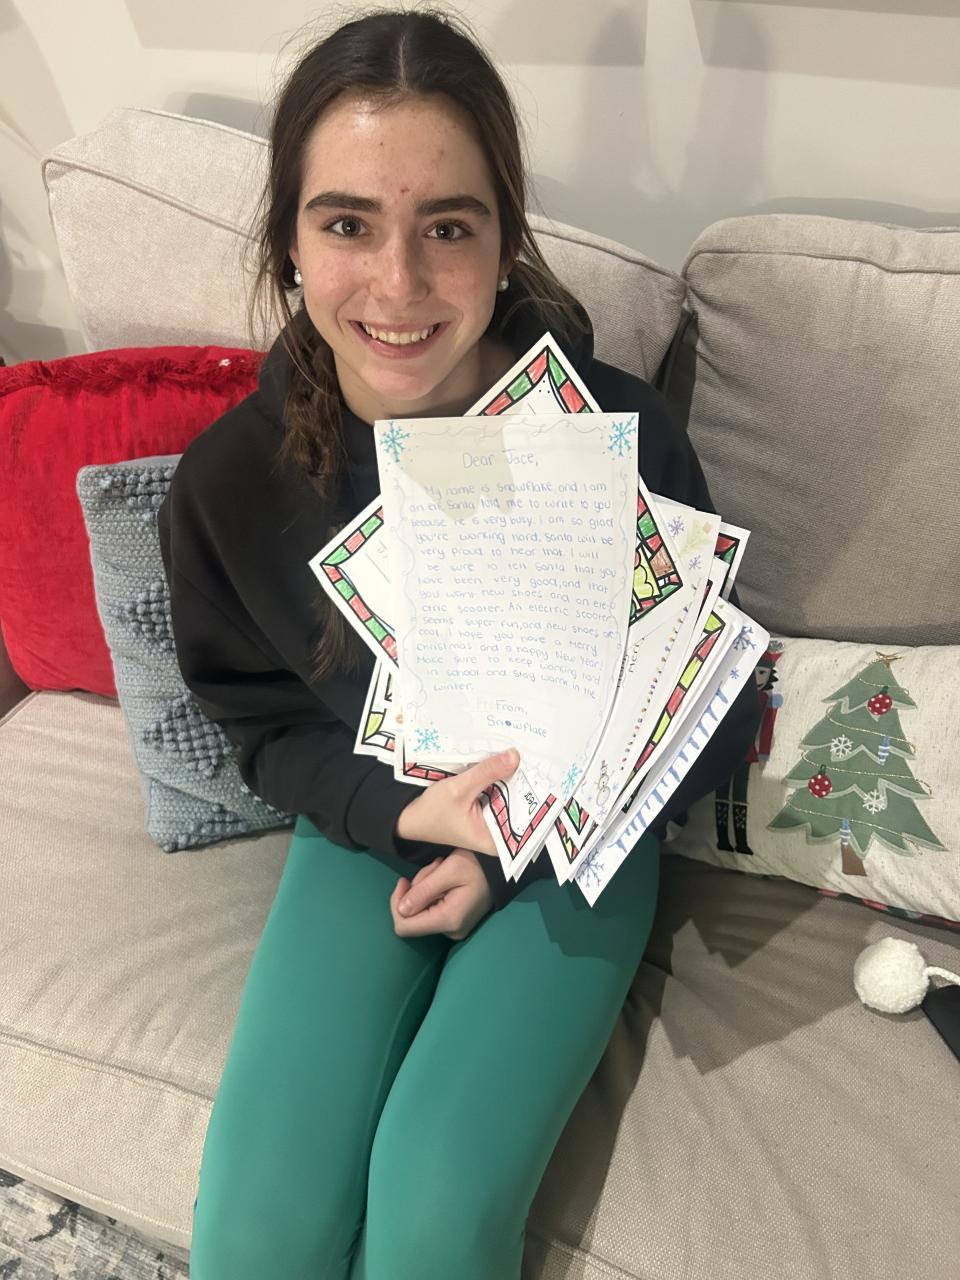 Dear Jace,
My name is Snowflake and I am
an elf. Santa told me to write to you
because he is very busy. I am so glad
you're working hard, Santa will be
very proud to hear that. I will
be sure to tell Santa that you
have been very good, and that
you want new shoes and an ele-
ctric scooter. An electric scooter
seems super fun, and new shoes are
cool. I hope you have a Merry
Christmas and a happy New Year!
Make sure to keep working hard
in school and stay warm in the
winter.
From,
Snowflake
Dear